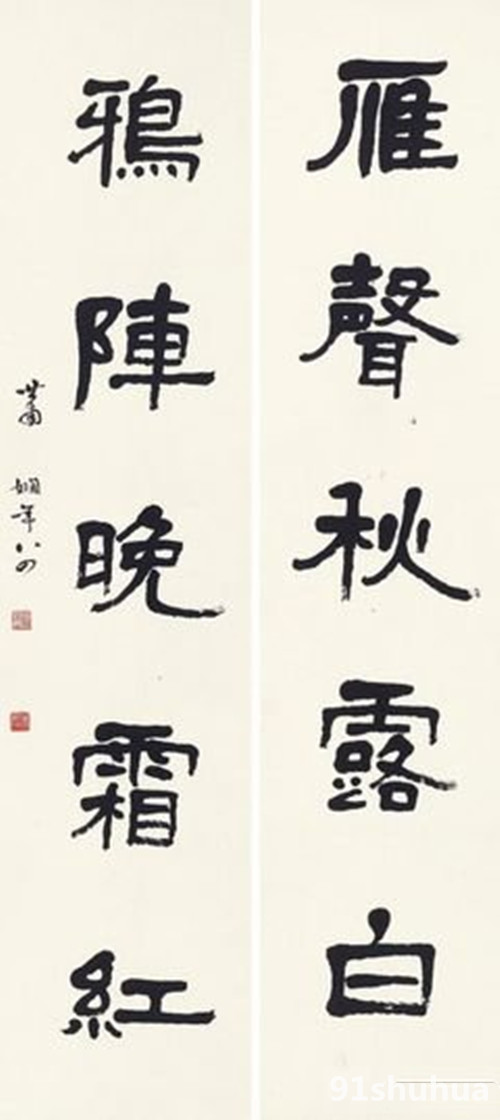 雁聲秋露白
鴉陣晚霜紅
嫺年八四
91shuhua